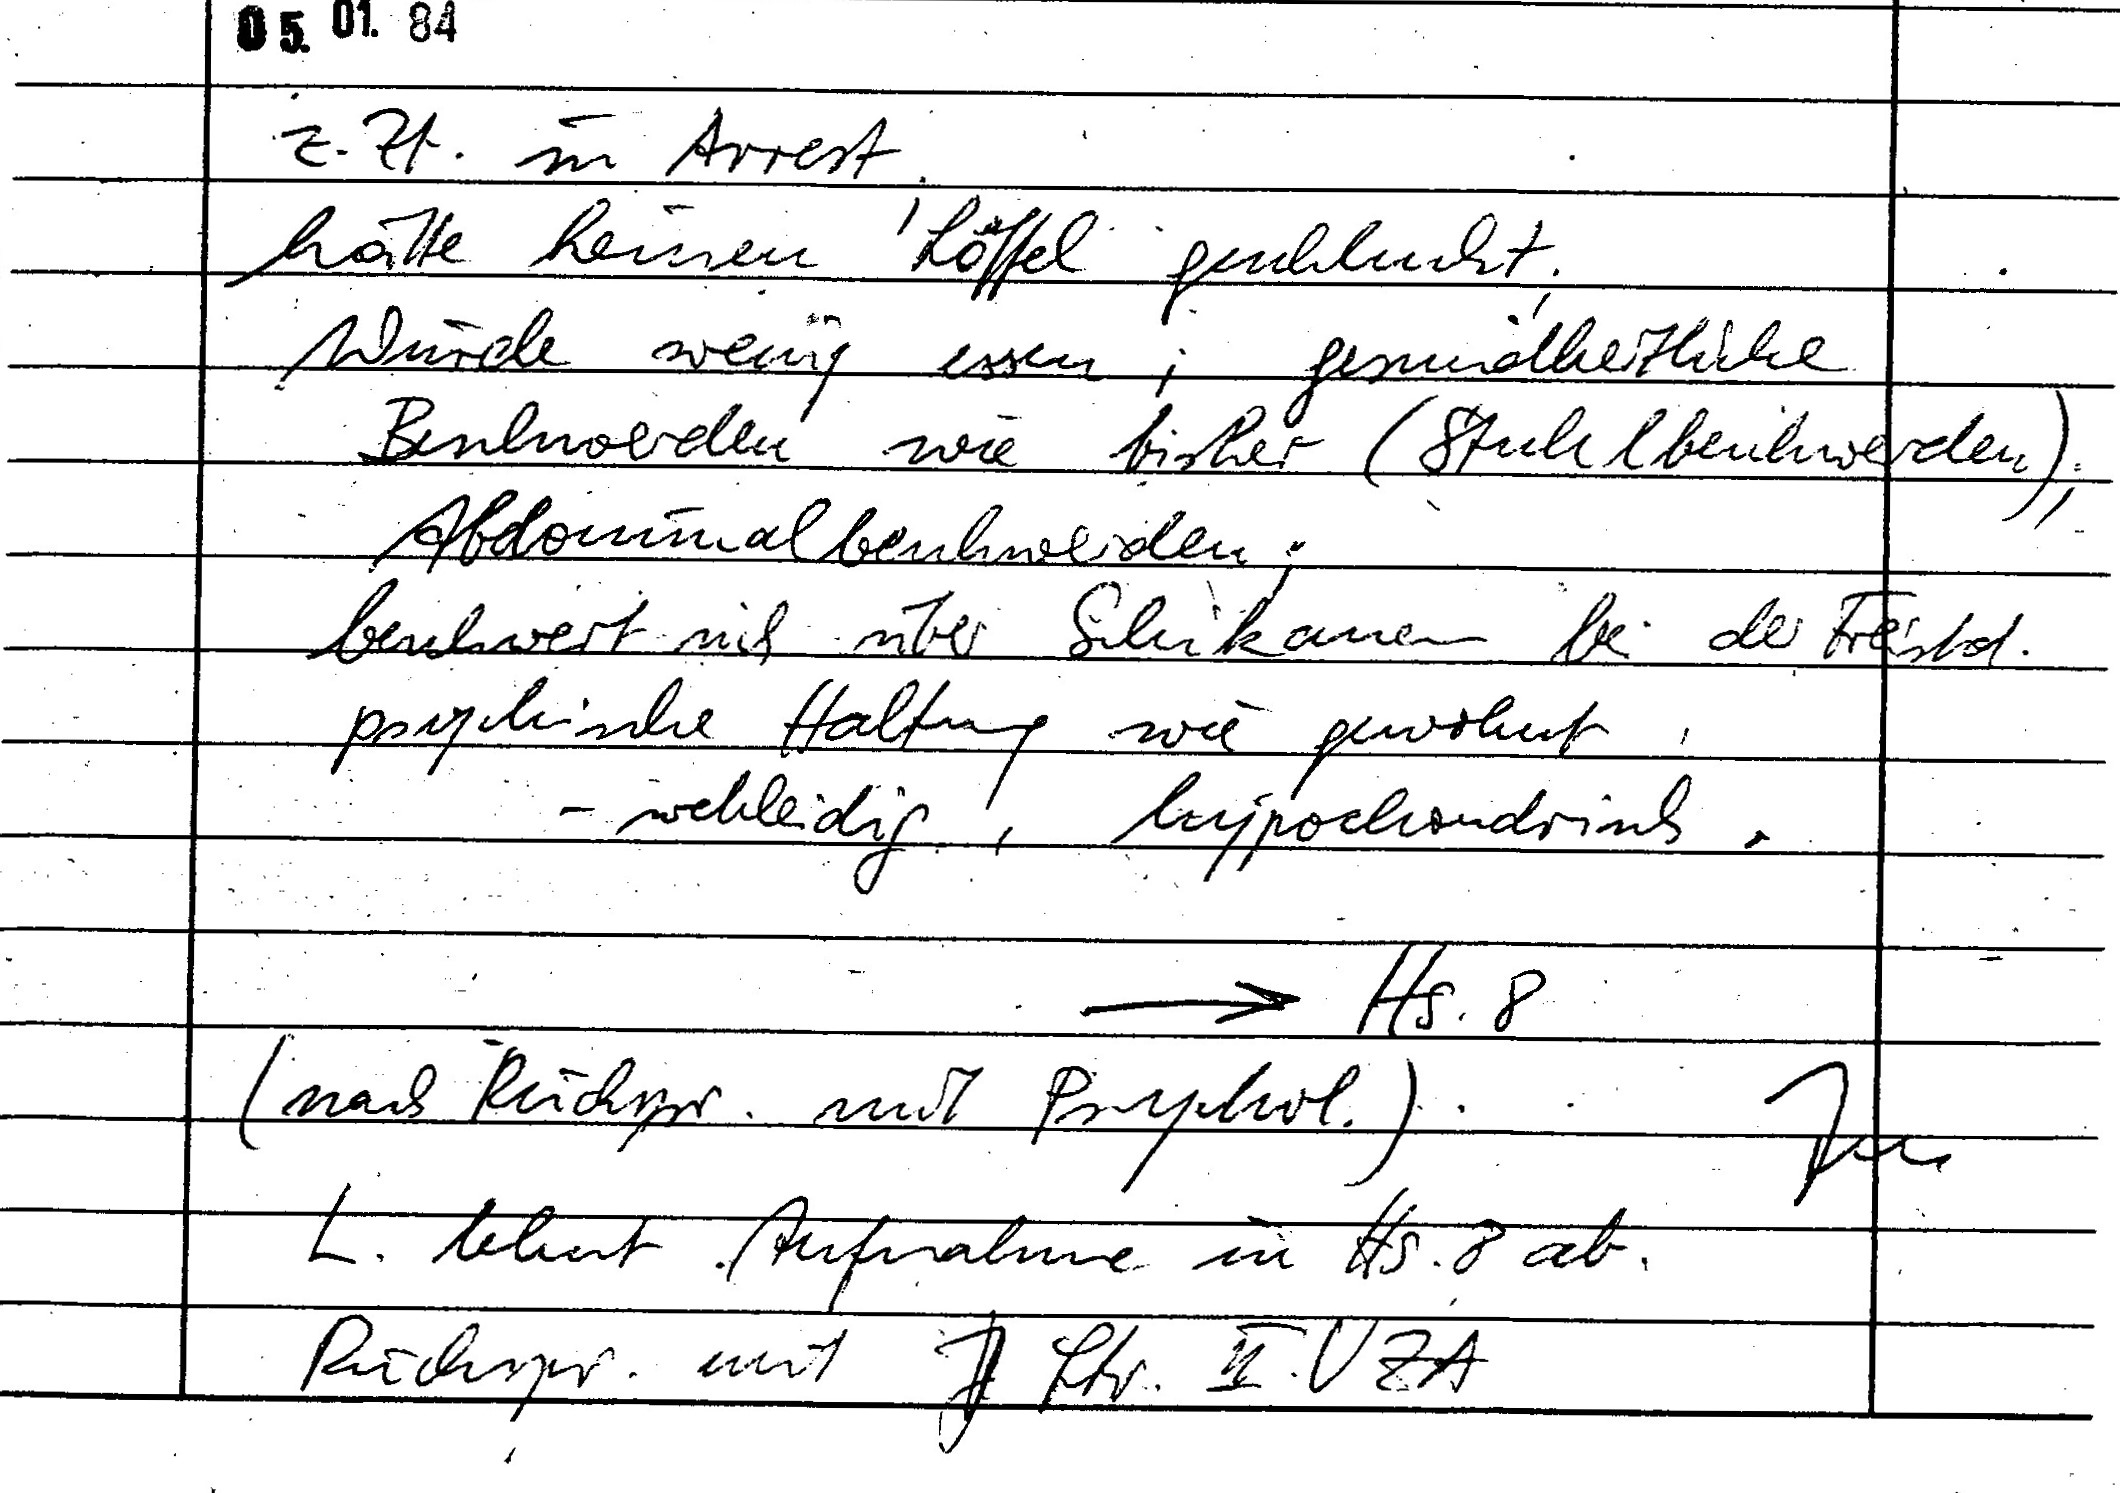 05. 01. 84
z. Zt. in Arrest,
hätte keinen Löffel geschluckt,
Würde wenig essen; gesundheitliche
Beschwerden wie bisher (Stuhlbeschwerden),
Abdominalbeschwerden;
beschwert sich über Schikanen bei der Freistd.
psychische Haltung wie gewohnt,
- wehleidig, hypochondrisch.
→ Hs. 8
(nach Rückspr. mit Psychol.).
L. lehnt Aufnahme in Hs. 8 ab.
Rückspr. mit Ltr. II. VZA